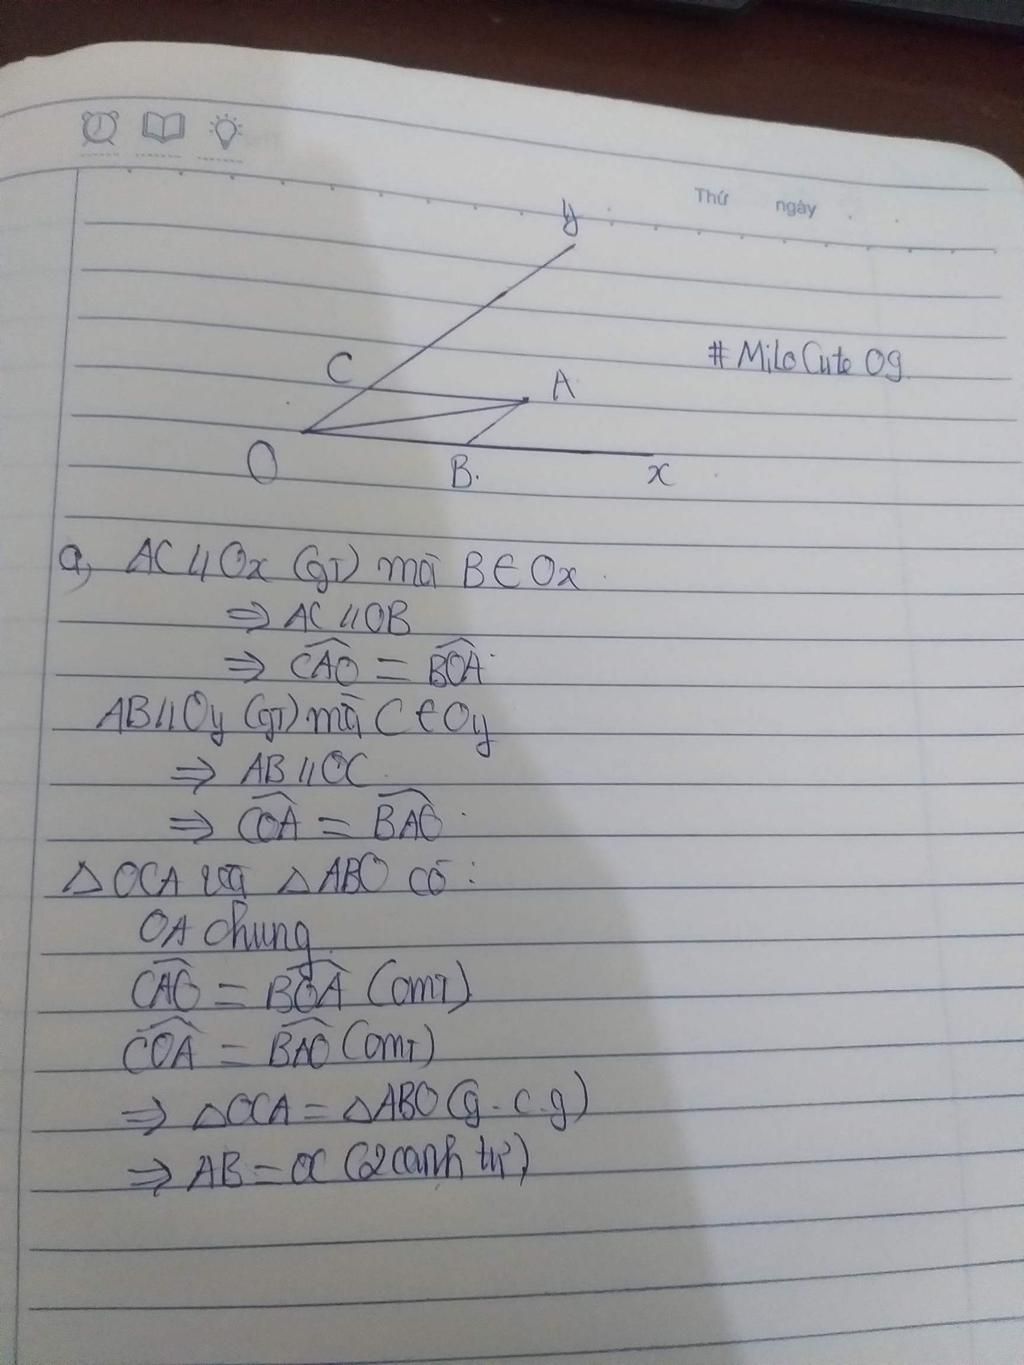 Thứ ngày
y
C
A
# MiloCute 09
O
B
x
a, AC // Ox (GT) mà B ∈ Ox
⇒ AC // OB
⇒ CAO = BOA
AB // Oy (GT) mà C ∈ Oy
⇒ AB // OC
⇒ COA = BAO
△OCA và △ABO có :
OA chung
CAO = BOA (cmT)
COA = BAO (cmT)
⇒ △OCA = △ABO (g-c-g)
⇒ AB = OC (2 cạnh tư)